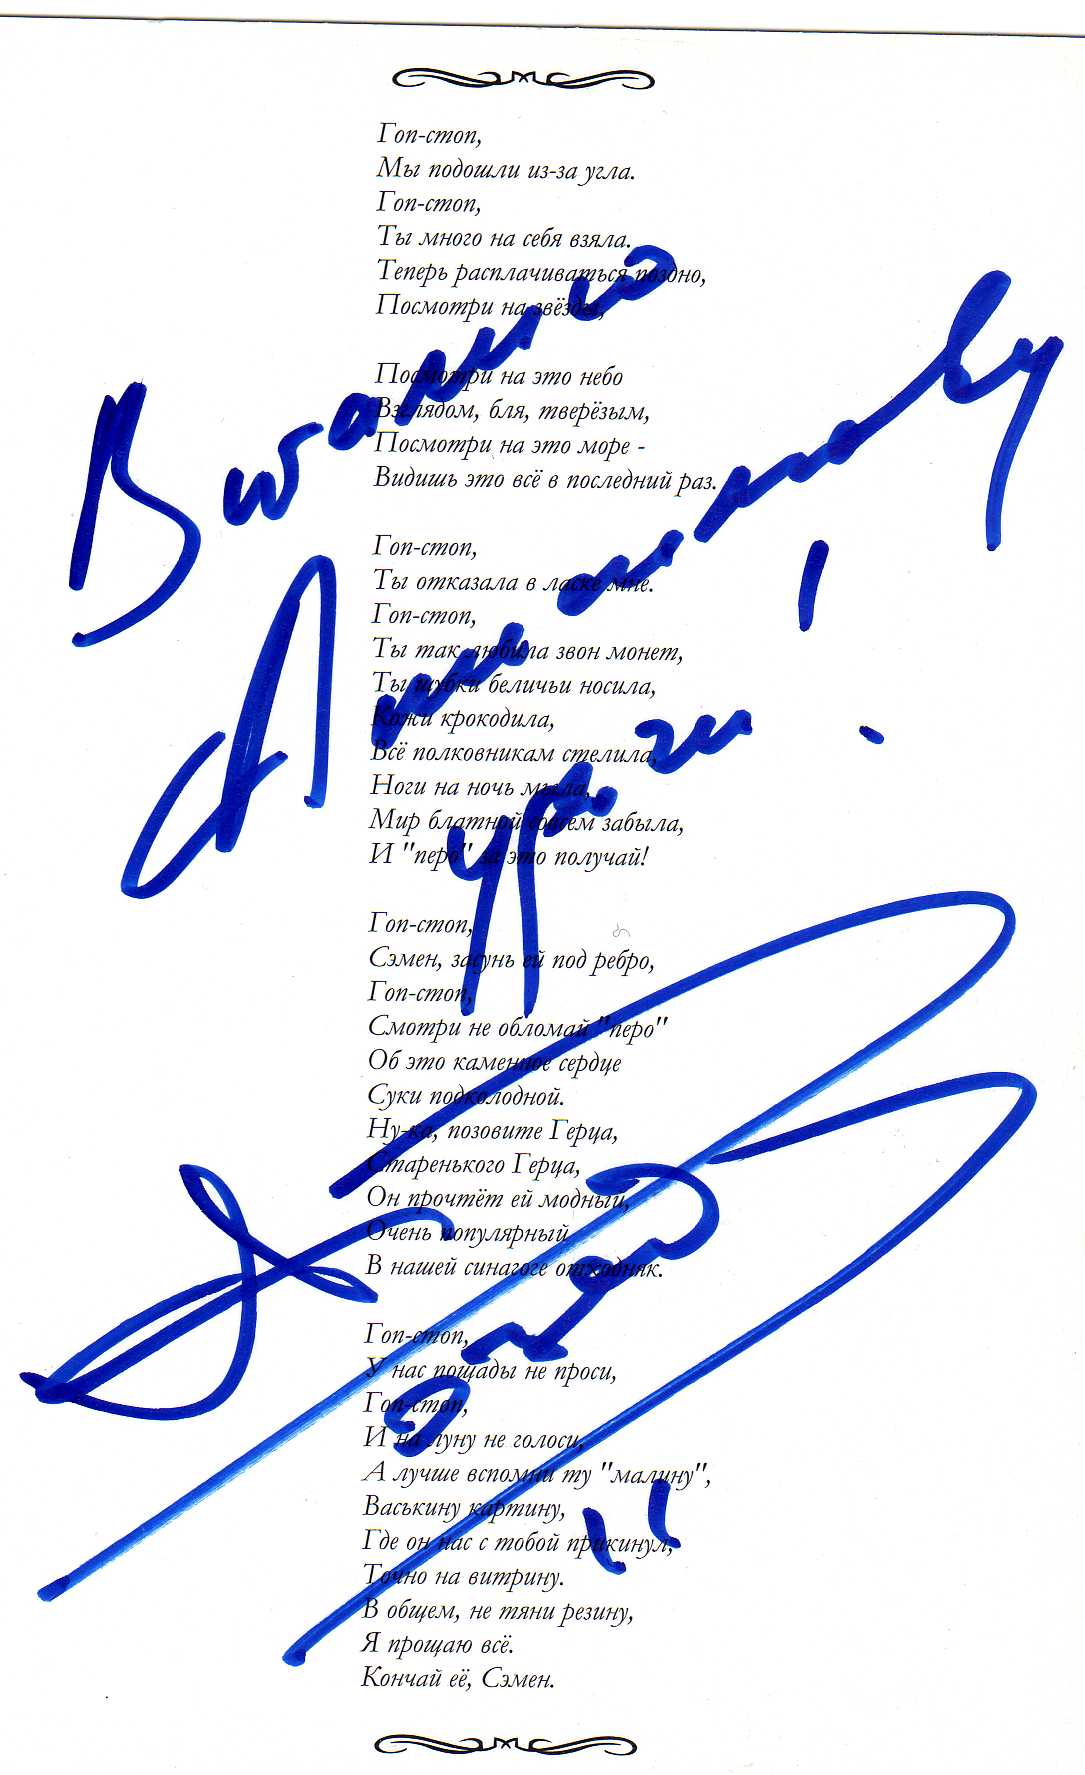 Гоп-стоп,
Мы подошли из-за угла.
Гоп-стоп,
Ты много на себя взяла.
Теперь расплачиваться поздно,
Посмотри на звёзды,
Посмотри на это небо
Взглядом, бля, тверёзым,
Посмотри на это море -
Видишь это всё в последний раз.
Гоп-стоп,
Ты отказала в ласке мне.
Гоп-стоп,
Ты так любила звон монет,
Ты шубки беличьи носила,
Кожи крокодила,
Всё полковникам стелила,
Ноги на ночь мыла,
Мир блатной совсем забыла,
И "перо" за это получай!
Гоп-стоп,
Сэмен, засунь ей под ребро,
Гоп-стоп,
Смотри не обломай "перо"
Об это каменное сердце
Суки подколодной.
Ну-ка, позовите Герца,
Старенького Герца,
Он прочтёт ей модный,
Очень популярный
В нашей синагоге отходняк.
Гоп-стоп,
У нас пощады не проси,
Гоп-стоп,
И на луну не голоси,
А лучше вспомни ту "малину",
Васькину картину,
Где он нас с тобой прикинул,
Точно на витрину.
В общем, не тяни резину,
Я прощаю всё.
Кончай её, Сэмен.
Виталию